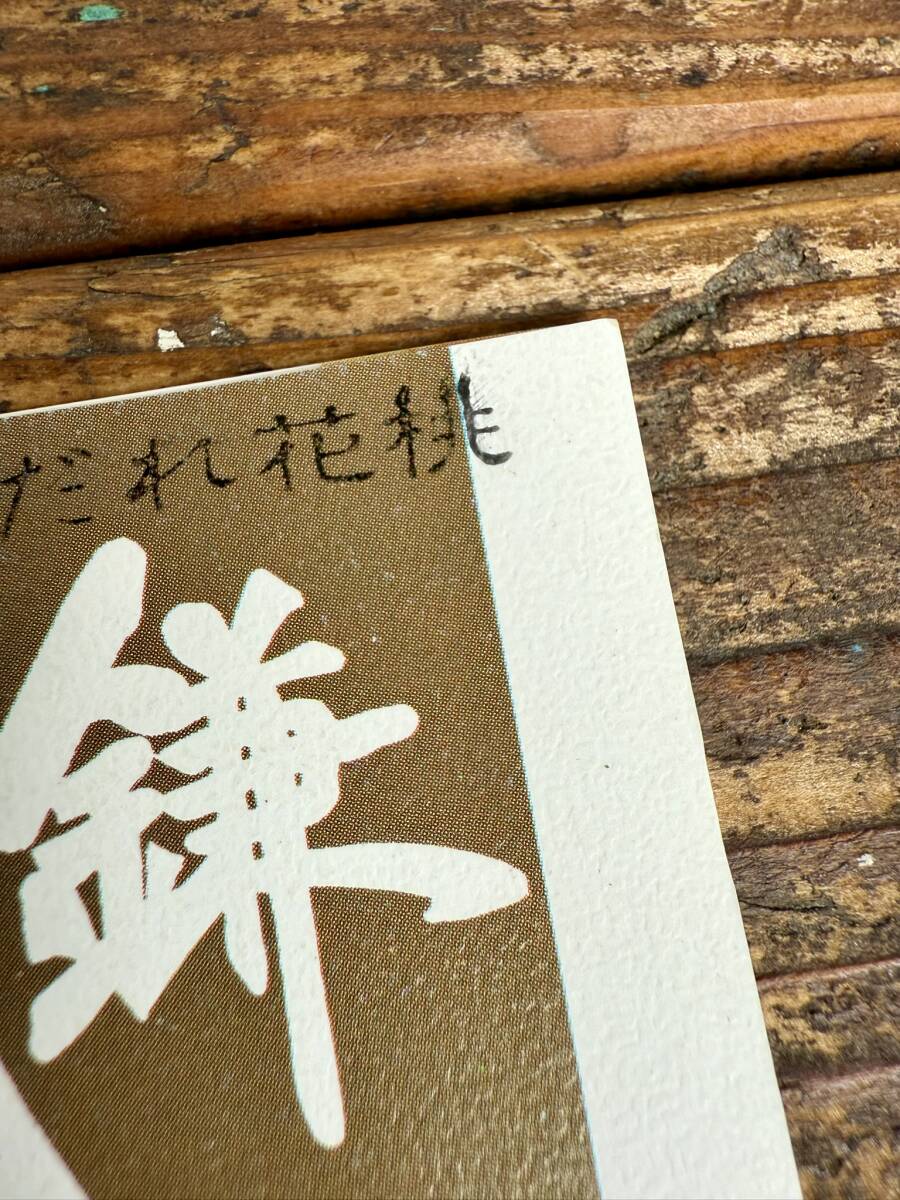 だれ花桃
鎌